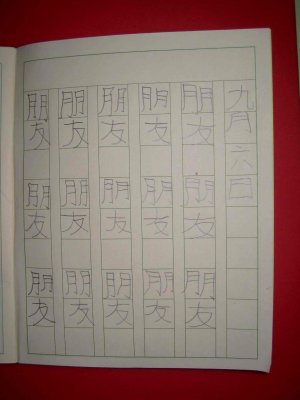 九月六日
朋友朋友朋友
朋友朋友朋友
朋友朋友朋友
朋友朋友朋友
朋友朋友朋友